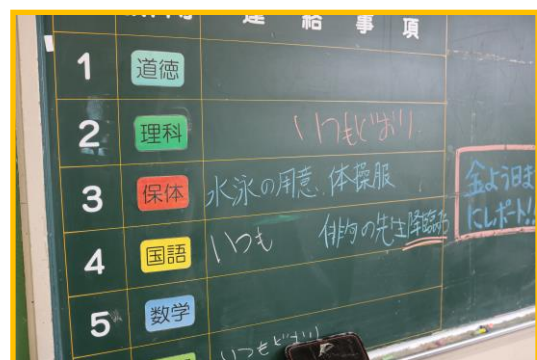 連絡事項
1 道徳
2 理科 いつもどおり
3 保体 水泳の用意、体操服
4 国語 いつも 俳句の先生降臨
5 数学
いつもどおり
金よう日ま
にレポート!!